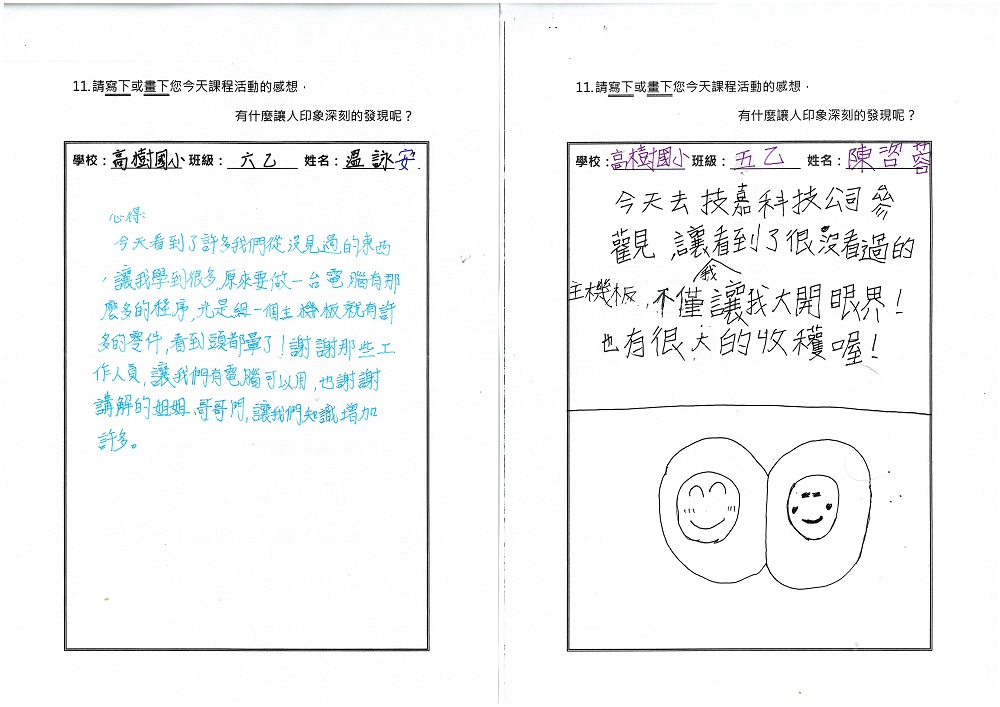 11.請寫下或畫下您今天課程活動的感想，
有什麼讓人印象深刻的發現呢？
學校：高樹國小 班級：六乙 姓名：溫詠安
心得:
今天看到了許多我們從沒見過的東西
，讓我學到很多,原來要做一台電腦有那
麼多的程序,光是組一個主機板就有許
多的零件,看到頭都暈了!謝謝那些工
作人員,讓我們有電腦可以用,也謝謝
講解的姐姐、哥哥們,讓我們知識增加
許多。
11.請寫下或畫下您今天課程活動的感想，
有什麼讓人印象深刻的發現呢？
學校：高樹國小 班級：五乙 姓名：陳蓉
今天去技嘉科技公司參
觀見,讓我看到了很沒看過的
主機板,不僅讓我大開眼界!
也有很大的收穫喔!